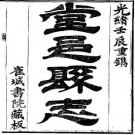 光緒壬辰重鐫
堂邑縣志
崔城書院藏板